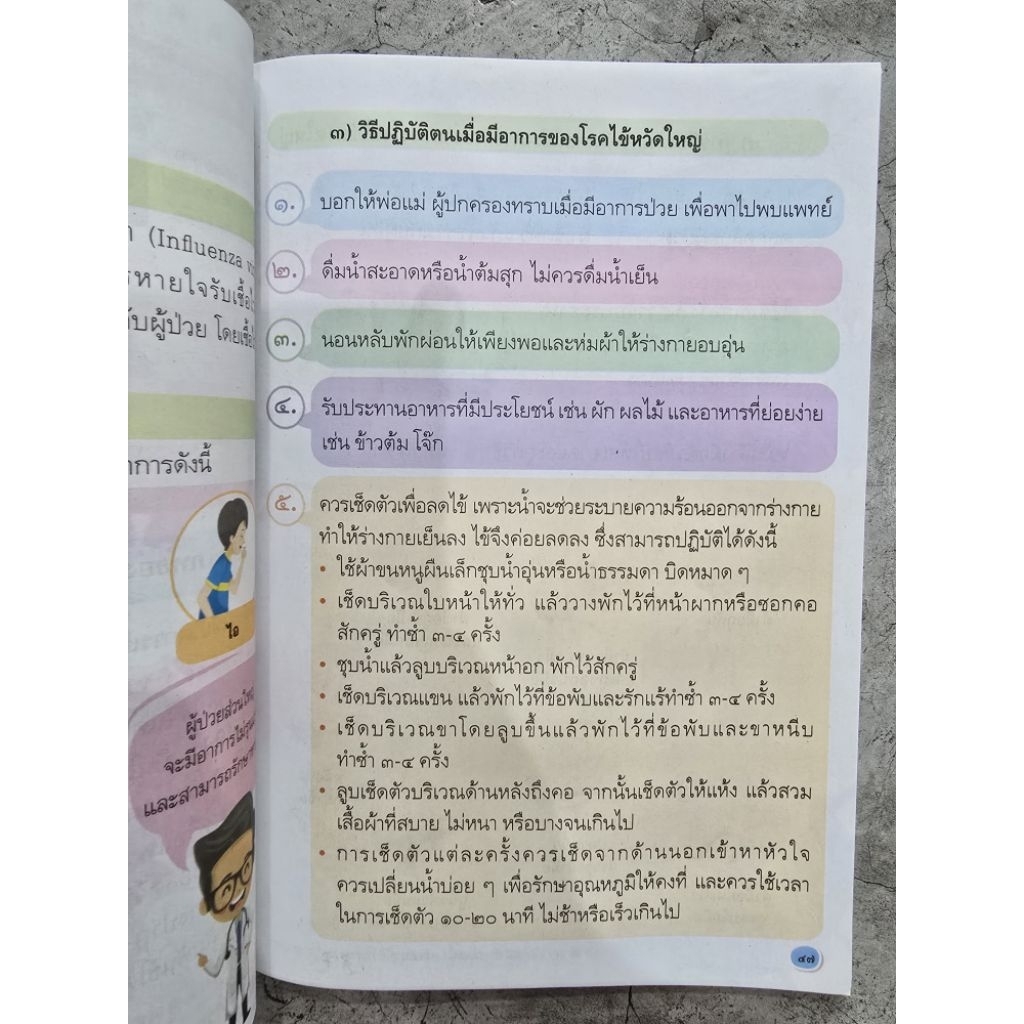 (Influenza
หายใจรับเชื้อ
ผู้ป่วย โดยเชื้อ
อาการดังนี้
ไอ
ผู้ป่วยส่วนใหญ่
จะมีอาการไม่รุนแรง
และสามารถรักษา
๓) วิธีปฏิบัติตนเมื่อมีอาการของโรคไข้หวัดใหญ่
๑. บอกให้พ่อแม่ ผู้ปกครองทราบเมื่อมีอาการป่วย เพื่อพาไปพบแพทย์
๒. ดื่มน้ำสะอาดหรือน้ำต้มสุก ไม่ควรดื่มน้ำเย็น
๓. นอนหลับพักผ่อนให้เพียงพอและห่มผ้าให้ร่างกายอบอุ่น
๔. รับประทานอาหารที่มีประโยชน์ เช่น ผัก ผลไม้ และอาหารที่ย่อยง่าย
เช่น ข้าวต้ม โจ๊ก
๕. ควรเช็ดตัวเพื่อลดไข้ เพราะน้ำจะช่วยระบายความร้อนออกจากร่างกาย
ทำให้ร่างกายเย็นลง ไข้จึงค่อยลดลง ซึ่งสามารถปฏิบัติได้ดังนี้
• ใช้ผ้าขนหนูผืนเล็กชุบน้ำอุ่นหรือน้ำธรรมดา บิดหมาด ๆ
• เช็ดบริเวณใบหน้าให้ทั่ว แล้ววางพักไว้ที่หน้าผากหรือซอกคอ
สักครู่ ทำซ้ำ ๓-๔ ครั้ง
• ชุบน้ำแล้วลูบบริเวณหน้าอก พักไว้สักครู่
• เช็ดบริเวณแขน แล้วพักไว้ที่ข้อพับและรักแร้ทำซ้ำ ๓-๔ ครั้ง
• เช็ดบริเวณขาโดยลูบขึ้นแล้วพักไว้ที่ข้อพับและขาหนีบ
ทำซ้ำ ๓-๔ ครั้ง
• ลูบเช็ดตัวบริเวณด้านหลังถึงคอ จากนั้นเช็ดตัวให้แห้ง แล้วสวม
เสื้อผ้าที่สบาย ไม่หนา หรือบางจนเกินไป
• การเช็ดตัวแต่ละครั้งควรเช็ดจากด้านนอกเข้าหาหัวใจ
ควรเปลี่ยนน้ำบ่อย ๆ เพื่อรักษาอุณหภูมิให้คงที่ และควรใช้เวลา
ในการเช็ดตัว ๑๐-๒๐ นาที ไม่ช้าหรือเร็วเกินไป
๔๗